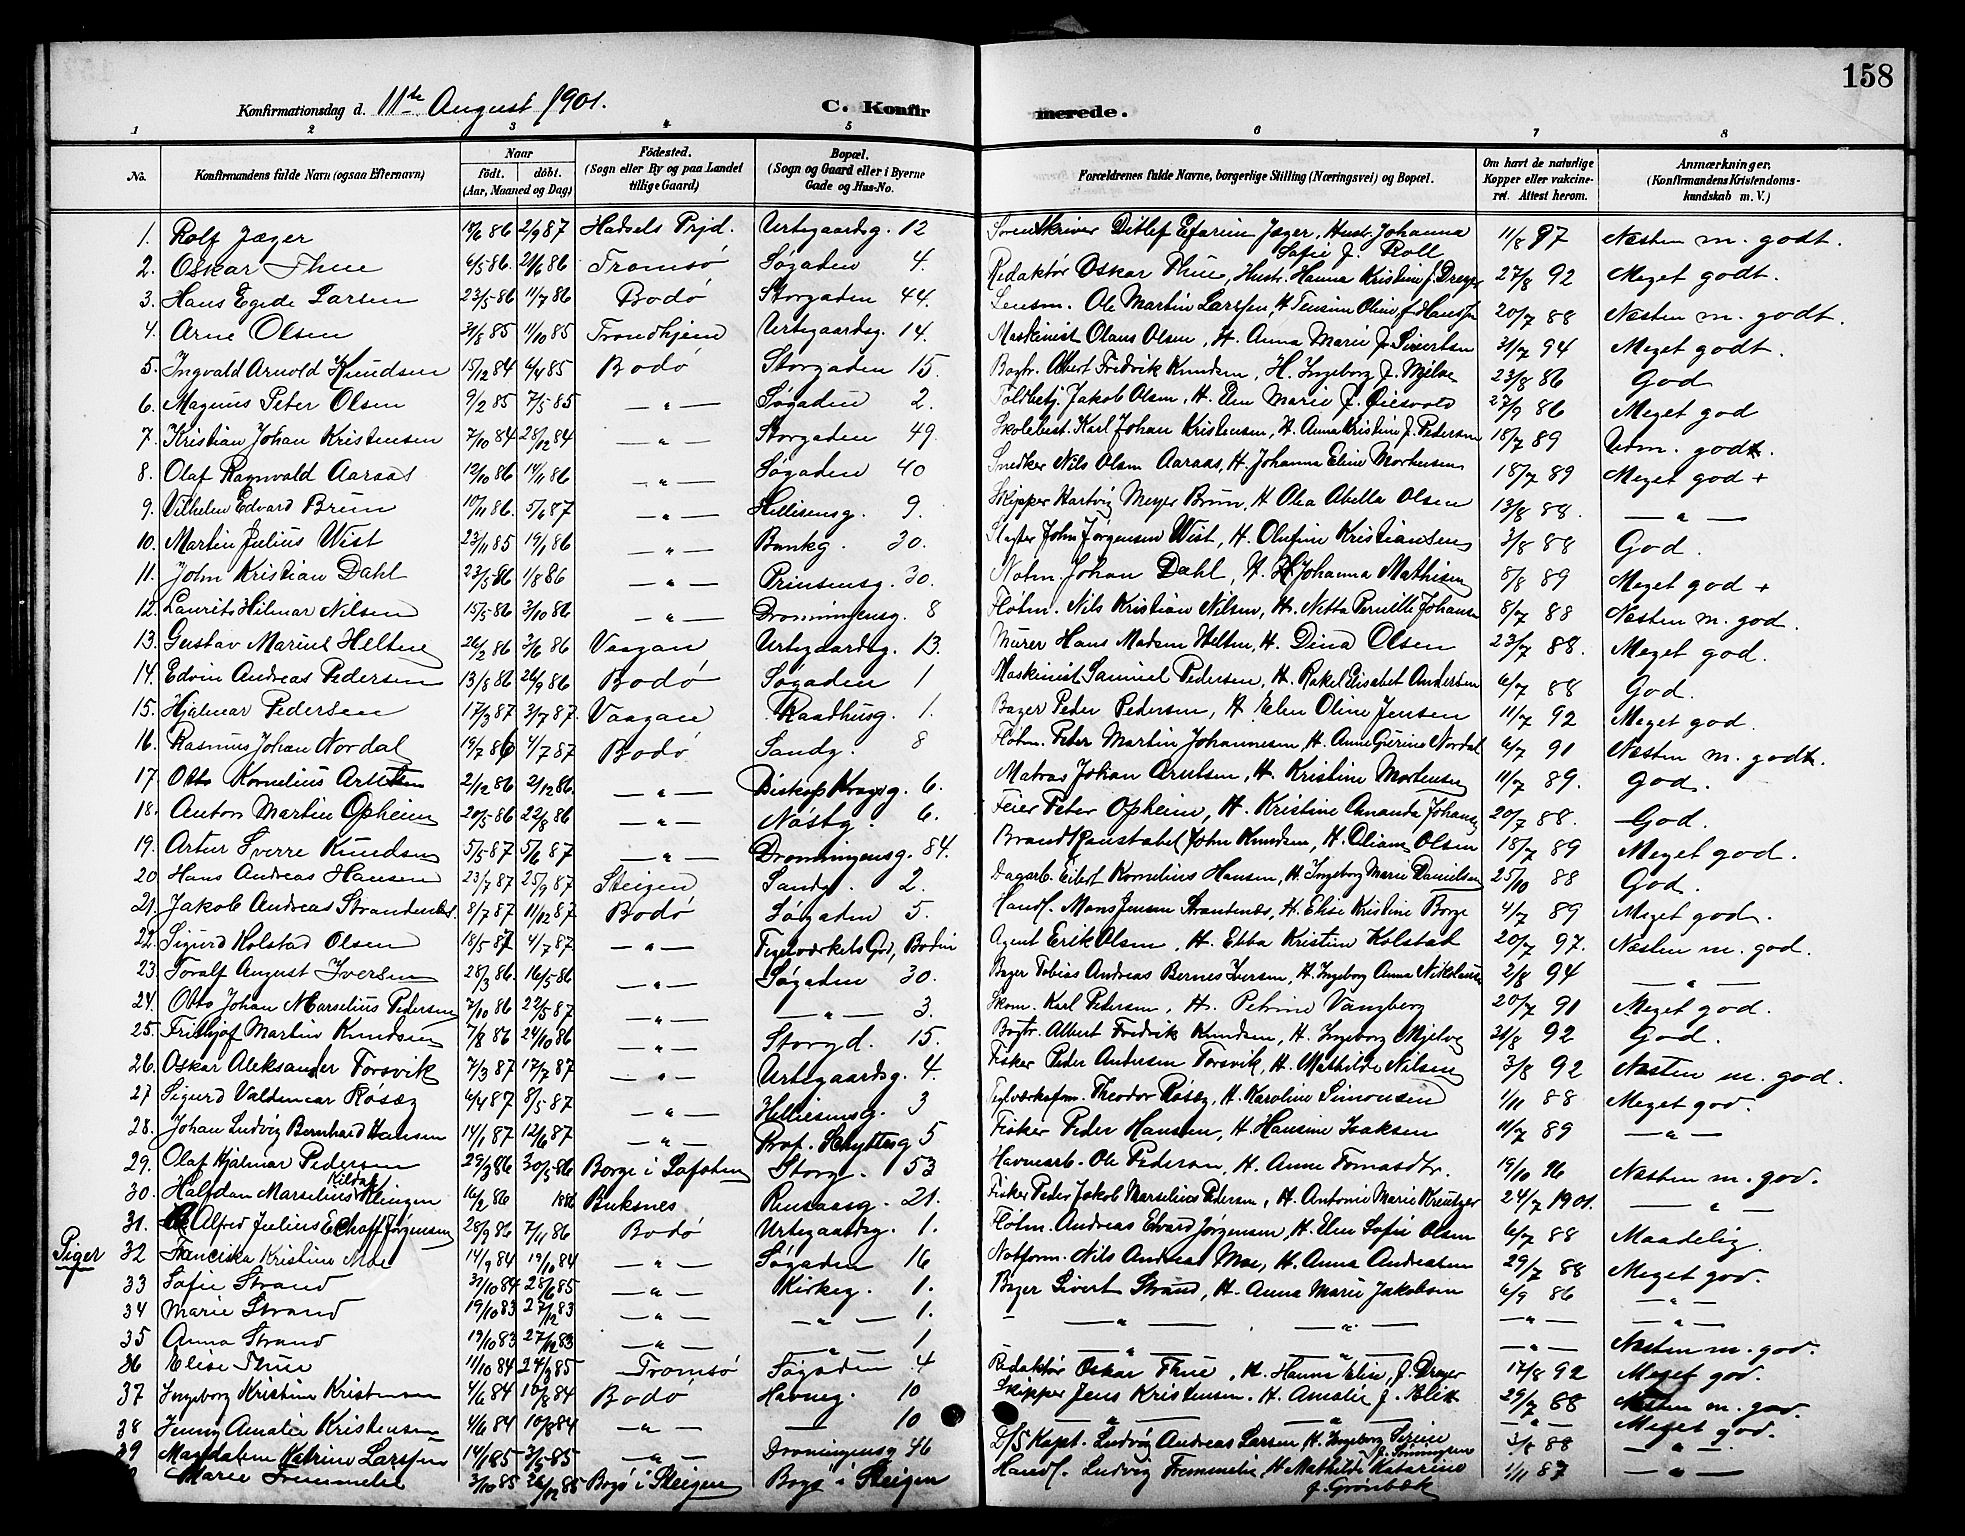 158
Konfirmationsdag d. 11te August 1901. C. Konfirmerede.
1 2 3 4 5 6 7 8
No. Konfirmandens fulde Navn (ogsaa Efternavn) Naar født. døbt. (Aar, Maaned og Dag) Fødested. (Sogn eller By og paa Landet tillige Gaard) Bopæl. (Sogn og Gaard eller i Byerne Gade og Hus-No. Forældrenes fulde Navne, borgerlige Stilling (Næringsvei) og Bopæl. Om havt de naturlige Kopper eller vakcineret. Attest herom. Anmærkninger, (Konfirmandens Kristendomskundskab m. V.)
1. Rolf Jæger 18/6 86 2/9 87 Hadsels Prjd. Urtegaardsg. 12 Ditlef Jæger, Hust. Johanna Sofie f. Roll 11/8 87 Næsten m. godt.
2. Oskar Thue 4/5 86. 21/6 86 Tromsø Søgaden 4. Redaktør Oskar Thue, Hustr. Hanna Kristine f. Dreyer 27/8 92 Meget godt.
3. Hans Egede Larsen 23/5 86 11/7 86 Bodø Storgaden 44. Lensm. Ole Martin Larssen, H. Oline f. Hanssen 20/7 88 Næsten m. godt.
4. Arne Olsen 31/8 85 11/10 85 Trondhjem Urtegaardsg. 14. Maskinist Olaus Olsen, H. Anna Marie f. Sivertsen 31/7 94 Meget godt.
5. Ingvald Arnold Knudsen 15/12 84 6/4 85 Bodø Storgaden 15. Bogtr. Albert Fredrik Knudsen, H. Ingeborg f. Mjelve 23/8 86 God
6. Magnus Peter Olsen 9/2 85 7/5 85 — " — Søgaden 2. Toldbetj. Jakob Olsen, H. Elen Marie f. 27/9 86 Meget god
7. Kristian Johan Kristensen 7/10 84 28/12 84 — " — Storgaden 49. Skolebest. Karl Johan Kristensen, H. Anna Kristine f. Pedersen 18/7 89 Udm. godt.
8. Olaf Ragnvald Aaraas 12/10 86 14/11 86 — " — Søgaden 40 Snedker Nils Olsen Aaraas, H. Johanna Eline Mortensen 18/7 89 Meget god +
9. Vilhelm Edvard Brun 10/11 86. 5/6 87 — " — Hellisensg. 9. Skipper Hartvig Meyer Brun, H. Olea Abella Olsen 13/8 88. — " —
10. Martin Julius Wist 23/11 85 19/1 86 — " — Bankg. 30. John Jørgensen Wist, H. Olufine Kristiansen 3/8 88 God.
11. John Kristian Dahl 23/5 86 1/8 86 — " — Prinsensg. 30. Notm. Johan Dahl, H. Johanna Mathisen 8/8 89 Meget god +
12. Laurits Hilmar Nilsen 15/5 86 3/10 86 — " — Dronningensg. 8 Fløtm. Nils Kristian Nilsen, H. Netta Pernille Johansen 8/7 88 Næsten m. god.
13. Gustav Marius Heltne 26/2 86 3/6 86 Vaagan Urtegaardsg. 13. Murer Hans Madsen Heltne, H. Dina Olsen 23/7 88. Meget god.
14. Edvin Andreas Pedersen 13/8 86 26/9 86 Bodø Søgaden 1 Maskinist Samuel Pedersen, H. Rakel Elisabet Andersen 6/7 88 God.
15. Hjalmar Pedersen 17/3 87 3/7 87. Vaagan Raadhusg. 1. Bager Peder Pedersen, H. Elen Oline Jensen 11/7 92 Meget god.
16. Rasmus Johan Nordal 19/7 86 4/7 87 Bodø Sandg. 8 Fløtm. Peter Martin Johannesen, H. Anne Gurine Nordal 6/7 91 Næsten m. godt.
17. Otto Kornelius Arntsen 2/12 86 2/12 86. — " — Biskop Kragsg. 6. Matros Johan Arntsen, H. Kristine Mortensen 11/7 89. God.
18. Anton Martin Opheim 20/5 86 22/8 86 — " — Næstg. 6. Feier Peter Opheim, H. Kristine Amanda Johansen 20/7 88. God.
19. Artur Sverre Knudsen 5/5 87 5/6 87 — " — Dronningensg. 84. Brandkonstabel John Knudsen, H. Olsen 18/7 89 Meget god.
20 Hans Andreas Hansen 23/7 87 25/9 87 Steigen Sandg. 2. Dagarb. Eilert Kornelius Hansen, H. Ingeborg Marie Danielsen 25/10 88 God.
21. Jakob Andreas Strandenæs. 8/7 87 11/12 87 Bodø Søgaden 5. Handl. Mons Jensen Strandenæs, H. Elise Kristine Borge 4/7 89 Meget god.
22. Sigurd Holstad Olsen 18/5 87 4/7 87 — " — Tegelværkets Grd, Bodin Agent Erik Olsen, H. Ebba Kristine Holstad 20/7 97. Næsten m. god.
23. Toralf August Iversen 28/3 86. 16/5 86 — " — Søgaden 30. Bager Tobias Andreas Bernes Iversen, H. Ingeborg Anna Nikolaisen 2/8 94 — " —
24. Otto Johan Marselius Pedersen 7/10 86 22/5 87 — " — — " — 3. Skom. Karl Pedersen, H. Petrine Vangberg 20/7 91 Meget god.
25. Frithjof Martin Knudsen 7/8 86 24/10 86 — " — Storgd. 15. Bogtr. Albert Fredrik Knudsen, H. Ingeborg Mjelve 31/8 92 God.
26. Oskar Aleksander Torsvik 7/3 87 17/7 87 — " — Urtegaardsg. 4. Fisker Peder Andersen Torsvik, H. Mathilde Nilsen 3/8 92 Næsten m. god.
27 Sigurd Valdemar Røsæg 4/4 87 8/5 87 — " — Hellisensg. 3 Teglværksfm. Theodor Røsæg, H. Karoline Simonsen 1/11 88 Meget god.
28. Johan Ludvig Bernhard Hansen 14/1 87 12/6 87 — " — Prof. Schyttesg 5 Fisker Peder Hansen, H. Hansine Isaksen 11/7 89 — " —
29. Olaf Hjalmar Pedersen 29/3 86 30/5 86 Borge i Lofoten Storg. 53 Havnearb. Ole Pedersen, H. Anne Tomasdtr. 19/10 96 Næsten m. god.
30. Halfdan Marselius Kildal Klingen 16/2 86 1886 Buksnes Rensaasg. 21. Fisker Peder Jakob Marselius Pedersen, H. Antonie Marie Kreutzer 24/7 1901. — " —
31. Alfred Julius Echoff Jørgensen 28/9 86 7/11 86 Bodø Urtegaardsg. 1. Fløtm. Andreas Edvard Jørgensen, H. Elen Sofie Olsen 6/7 88 Maadelig.
Piger
32 Franciska Kristine Moe 14/9 84 19/10 84 — " — Søgaden 16 Notform. Nils Andreas Moe, H. Anna Andreasen 29/7 88 Meget god.
33 Sofie Strand 31/10 84 28/6 85 — " — Kirkeg. 1. Bager Sivert Strand, H. Anna Marie Jakobsen 6/9 86 — " —
34 Marie Strand 19/10 83 27/12 83 — " — — " — 1. — " — — " — — " —
35 Anna Strand 19/10 83 27/12 83 — " — — " — 1 — " — — " — — " — Næsten m. god.
36 Elise Thue 11/10 84 24/3 85 Tromsø Søgaden 4 Redaktør Oskar Thue, H. Hanna Elin, f. Dreyer 17/8 92 Meget god.
37 Ingeborg Kristine Kristensen 4/6 84 10/8 84 Bodø Havneg. 10 Skipper Jens Kristensen. H. Amalie f. Blix 29/7 88 Næsten m. god.
38 Jenny Amalie Kristensen 4/6 84 10/8 84 — " — — 10 — " — — " — — " — Meget god.
39 Magdalene Katrine Larssen 14/1 85 3/5 85 — " — Dronningensg 46 D/S Kapt. Ludvig Andreas Larsen, H. Ingeborg Serine f. Rønningsen 3/8 88 — " —
Marie Tremmelie 3/10 85 26/12 85 Bogø i Steigen Bogø i Steigen Handl. Ludvig Tremmelie, H. Mathilde Katarine f. Grønbæk 1/11 87 — " —